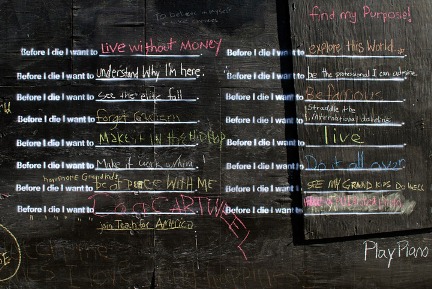 To believe
find my Purpose!
Before I die I want to LIVE WITHOUT MONEY
Before I die I want to understand Why I'm here.
Before I die I want to See the elite fall
Before I die I want to
Before I die I want to Make it in the
Before I die I want to Make it work
have more Grandkids
Before I die I want to be at PEACE WITH ME
Before I die I want to Do a CARTWHEEL
join Teach for America
Before I die I want to explore this World
Before I die I want to be the professional I can
Before I die I want to Be famous
Straddle the
Before I die I want to International dateline
Before I die I want to live
Before I die I want to Do it all over
Before I die I want to SEE MY GRAND KIDS DO WELL
Before I die I want to
Play Piano